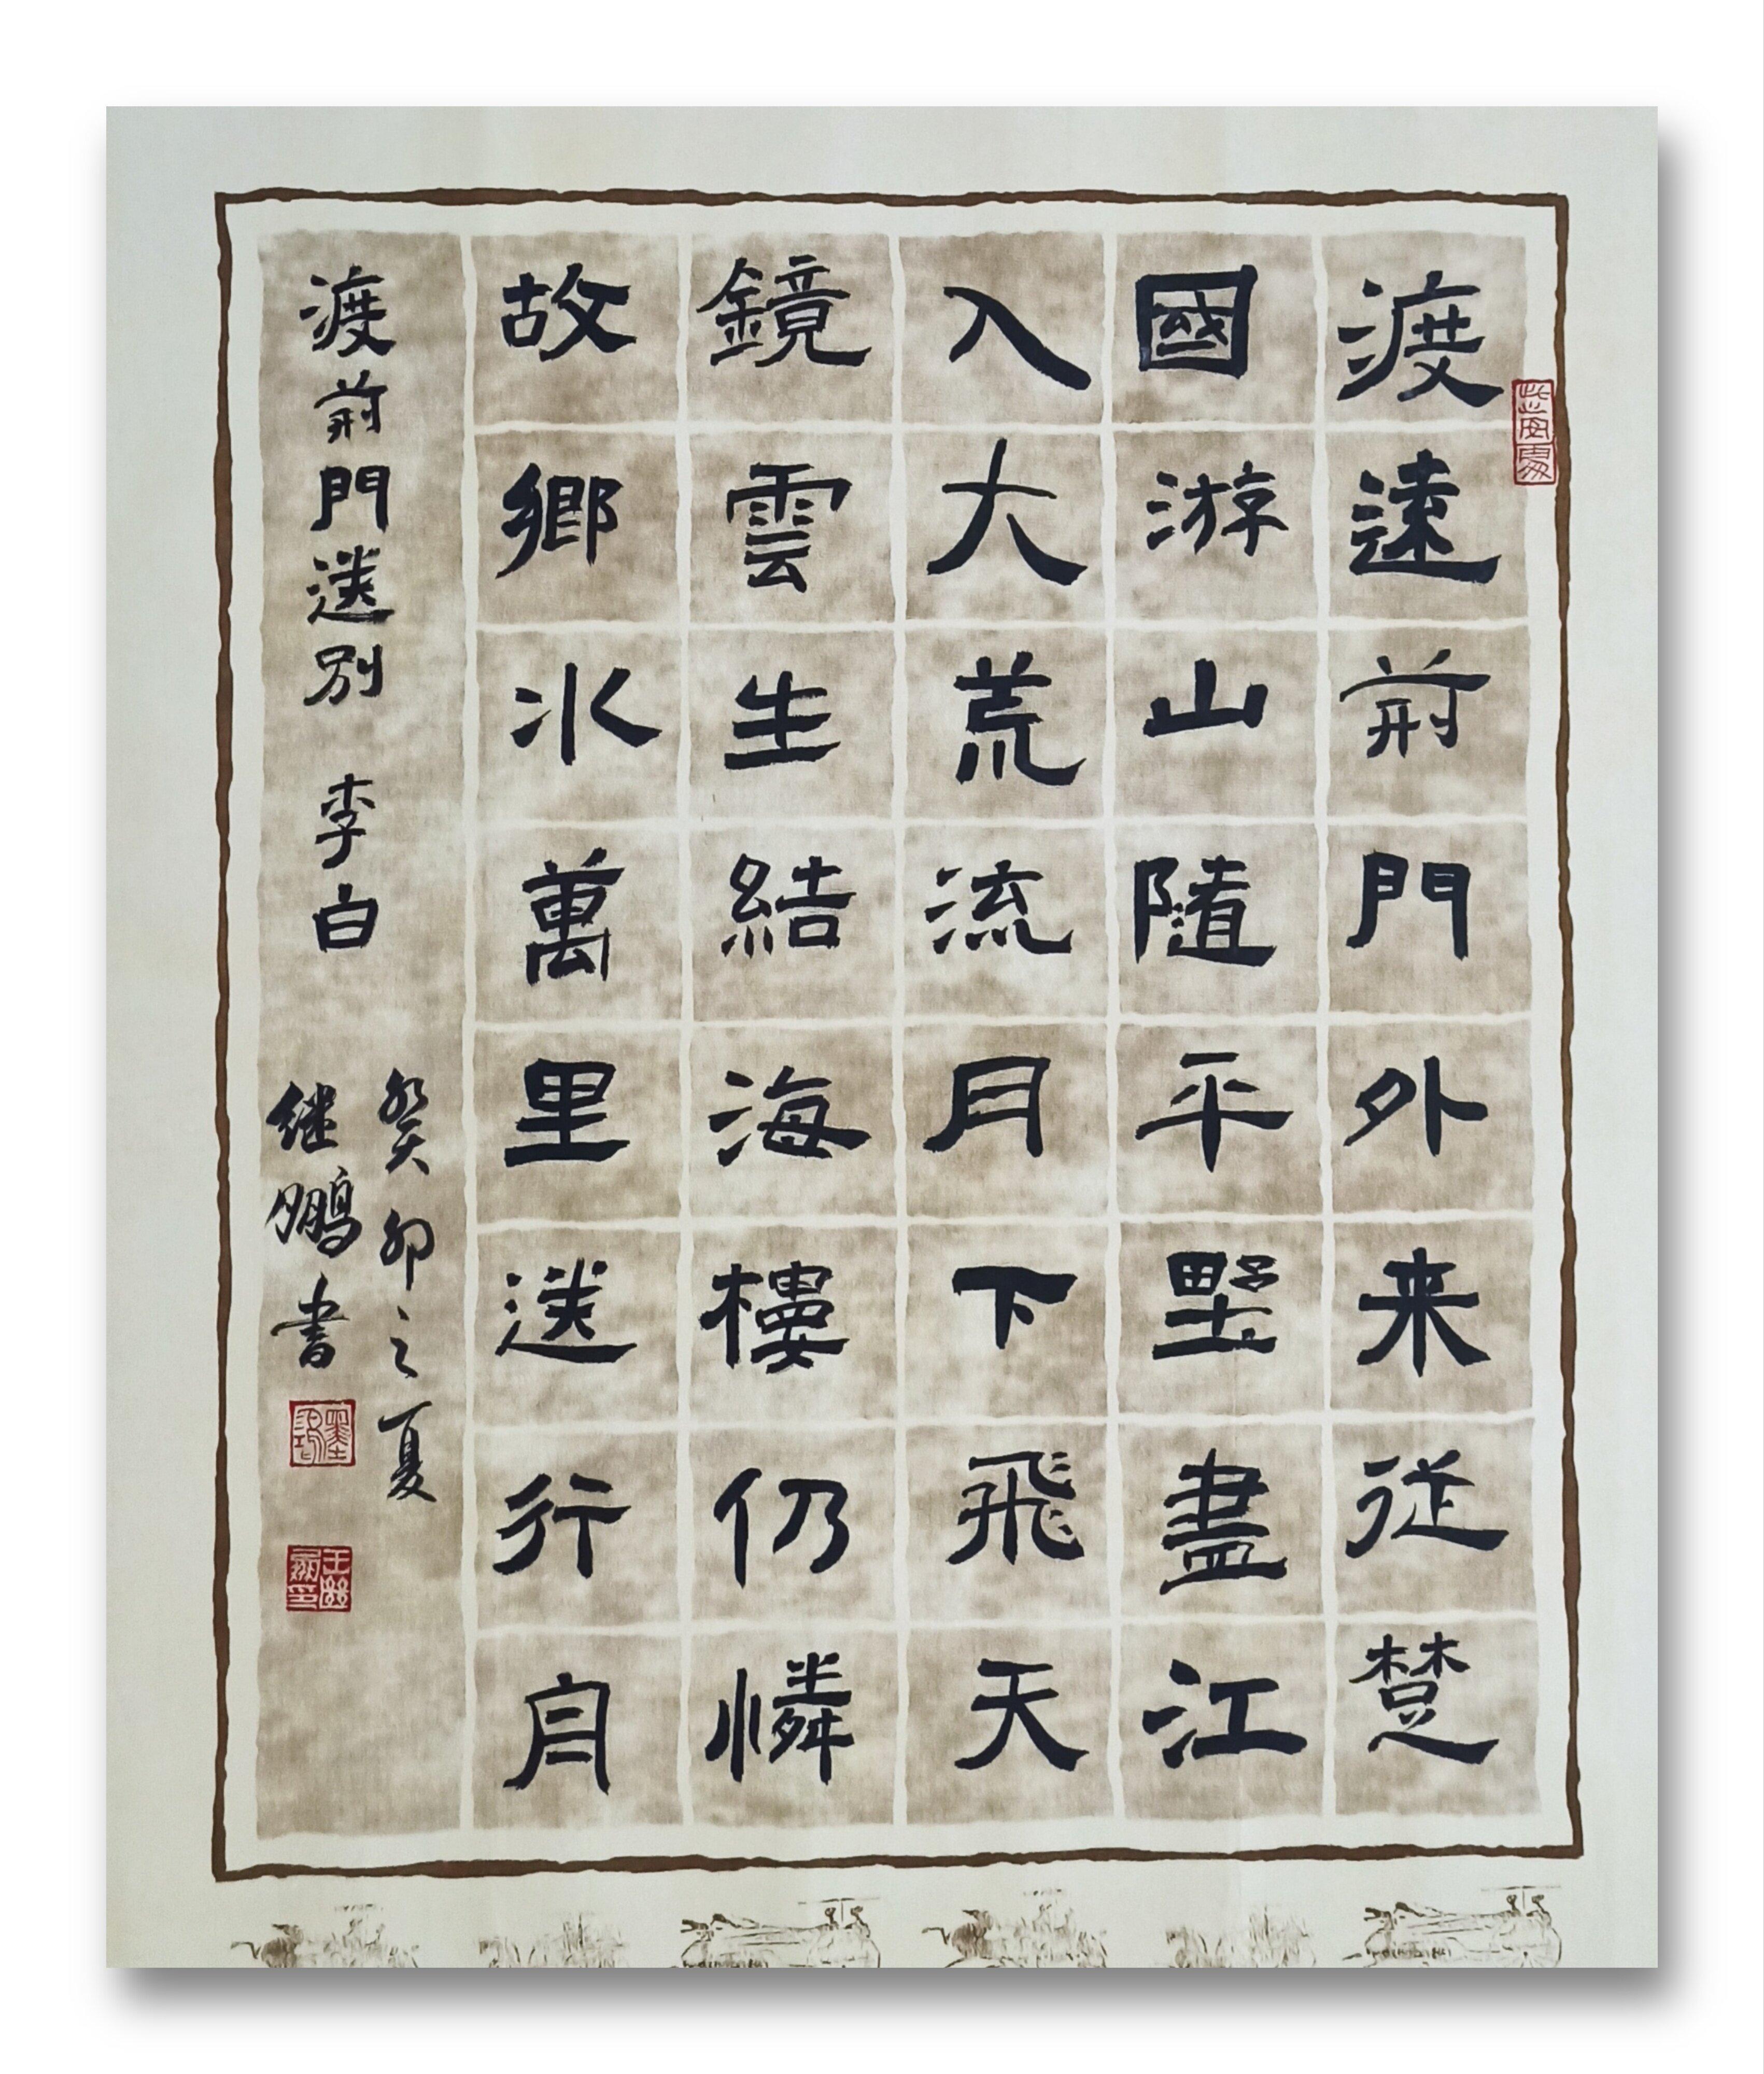 渡遠荊門外来従楚
國游山隨平野盡江
入大荒流月下飛天
鏡雲生結海樓仍憐
故鄉水萬里送行舟
渡荊門送别 李白
癸卯之夏
继鹏書